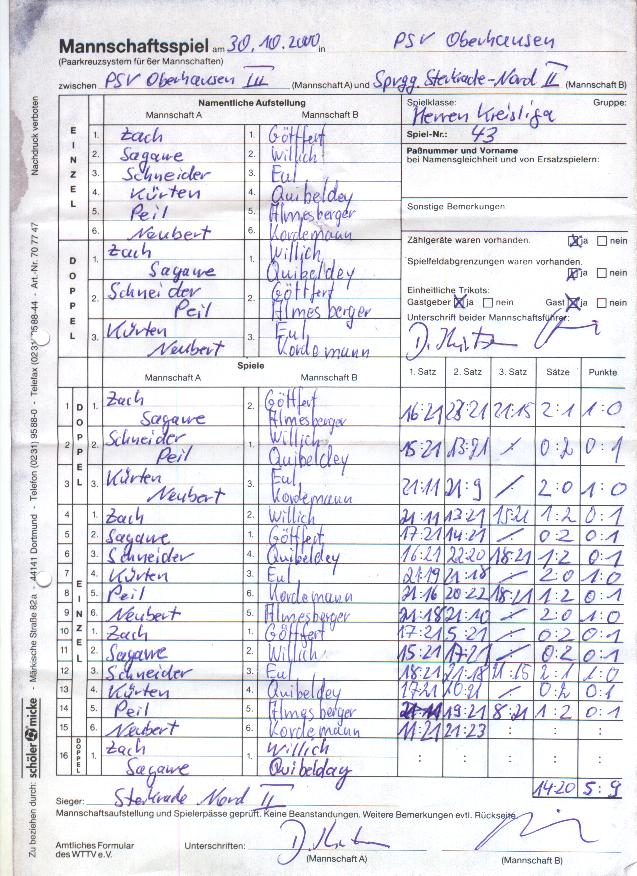 Mannschaftsspiel am 30.10.2000 in PSV Oberhausen
(Paarkreuzsystem für 6er Mannschaften)
zwischen PSV Oberhausen III (Mannschaft A) und Spvgg. Sterkrade-Nord II (Mannschaft B)
Namentliche Aufstellung
Mannschaft A Mannschaft B
EINZEL
1. Zach 1. Göffert
2. Sagawe 2. Willich
3. Schneider 3. Eul
4. Kürten 4. Quibeldey
5. Peil 5. Almesberger
6. Neubert 6. Kordemann
DOPPEL
1. Zach Sagawe 1. Willich Quibeldey
2. Schneider Peil 2. Göffert Almesberger
3. Kürten Neubert 3. Eul Kordemann
Spielklasse: Gruppe:
Herren Kreisliga
Spiel-Nr.: 43
Paßnummer und Vorname
bei Namensgleichheit und von Ersatzspielern:
Sonstige Bemerkungen:
Zählgeräte waren vorhanden. ja nein
Spielfeldabgrenzungen waren vorhanden.
ja nein
Einheitliche Trikots:
Gastgeber ja nein Gast ja nein
Unterschrift beider Mannschaftsführer:
Spiele
Mannschaft A Mannschaft B 1. Satz 2. Satz 3. Satz Sätze Punkte
DOPPEL
1 1. Zach Sagawe 2. Göffert Almesberger 16:21 23:21 21:15 2:1 1:0
2 2. Schneider Peil 1. Willich Quibeldey 15:21 13:21 0:2 0:1
3 3. Kürten Neubert 3. Eul Kordemann 21:11 21:9 2:0 1:0
EINZEL
4 1. Zach 2. Willich 21:11 13:21 15:21 1:2 0:1
5 2. Sagawe 1. Göffert 17:21 14:21 0:2 0:1
6 3. Schneider 4. Quibeldey 16:21 22:20 18:21 1:2 0:1
7 4. Kürten 3. Eul 21:19 21:18 2:0 1:0
8 5. Peil 6. Kordemann 21:16 20:22 18:21 1:2 0:1
9 6. Neubert 5. Almesberger 21:18 21:10 2:0 1:0
10 1. Zach 1. Göffert 17:21 5:21 0:2 0:1
11 2. Sagawe 2. Willich 15:21 17:21 0:2 0:1
12 3. Schneider 3. Eul 18:21 21:18 21:15 2:1 1:0
13 4. Kürten 4. Quibeldey 17:21 10:21 0:2 0:1
14 5. Peil 5. Almesberger 19:21 8:21 1:2 0:1
15 6. Neubert 6. Kordemann 11:21 21:23 : : :
DOPPEL
16 1. Zach Sagawe 1. Willich Quibelday : : : : :
14:20 5:9
Sieger: Sterkrade Nord II
Mannschaftsaufstellung und Spielerpässe geprüft. Keine Beanstandungen. Weitere Bemerkungen evtl. Rückseite.
Amtliches Formular
des WTTV e.V.
Unterschriften:
(Mannschaft A) (Mannschaft B)
Zu beziehen durch: schöler micke - Märkische Straße 82a - 44141 Dortmund - Telefon (0231) 9588-0 - Telefax (0231) 9588-44 - Art.-Nr. 70 77 47 Nachdruck verboten